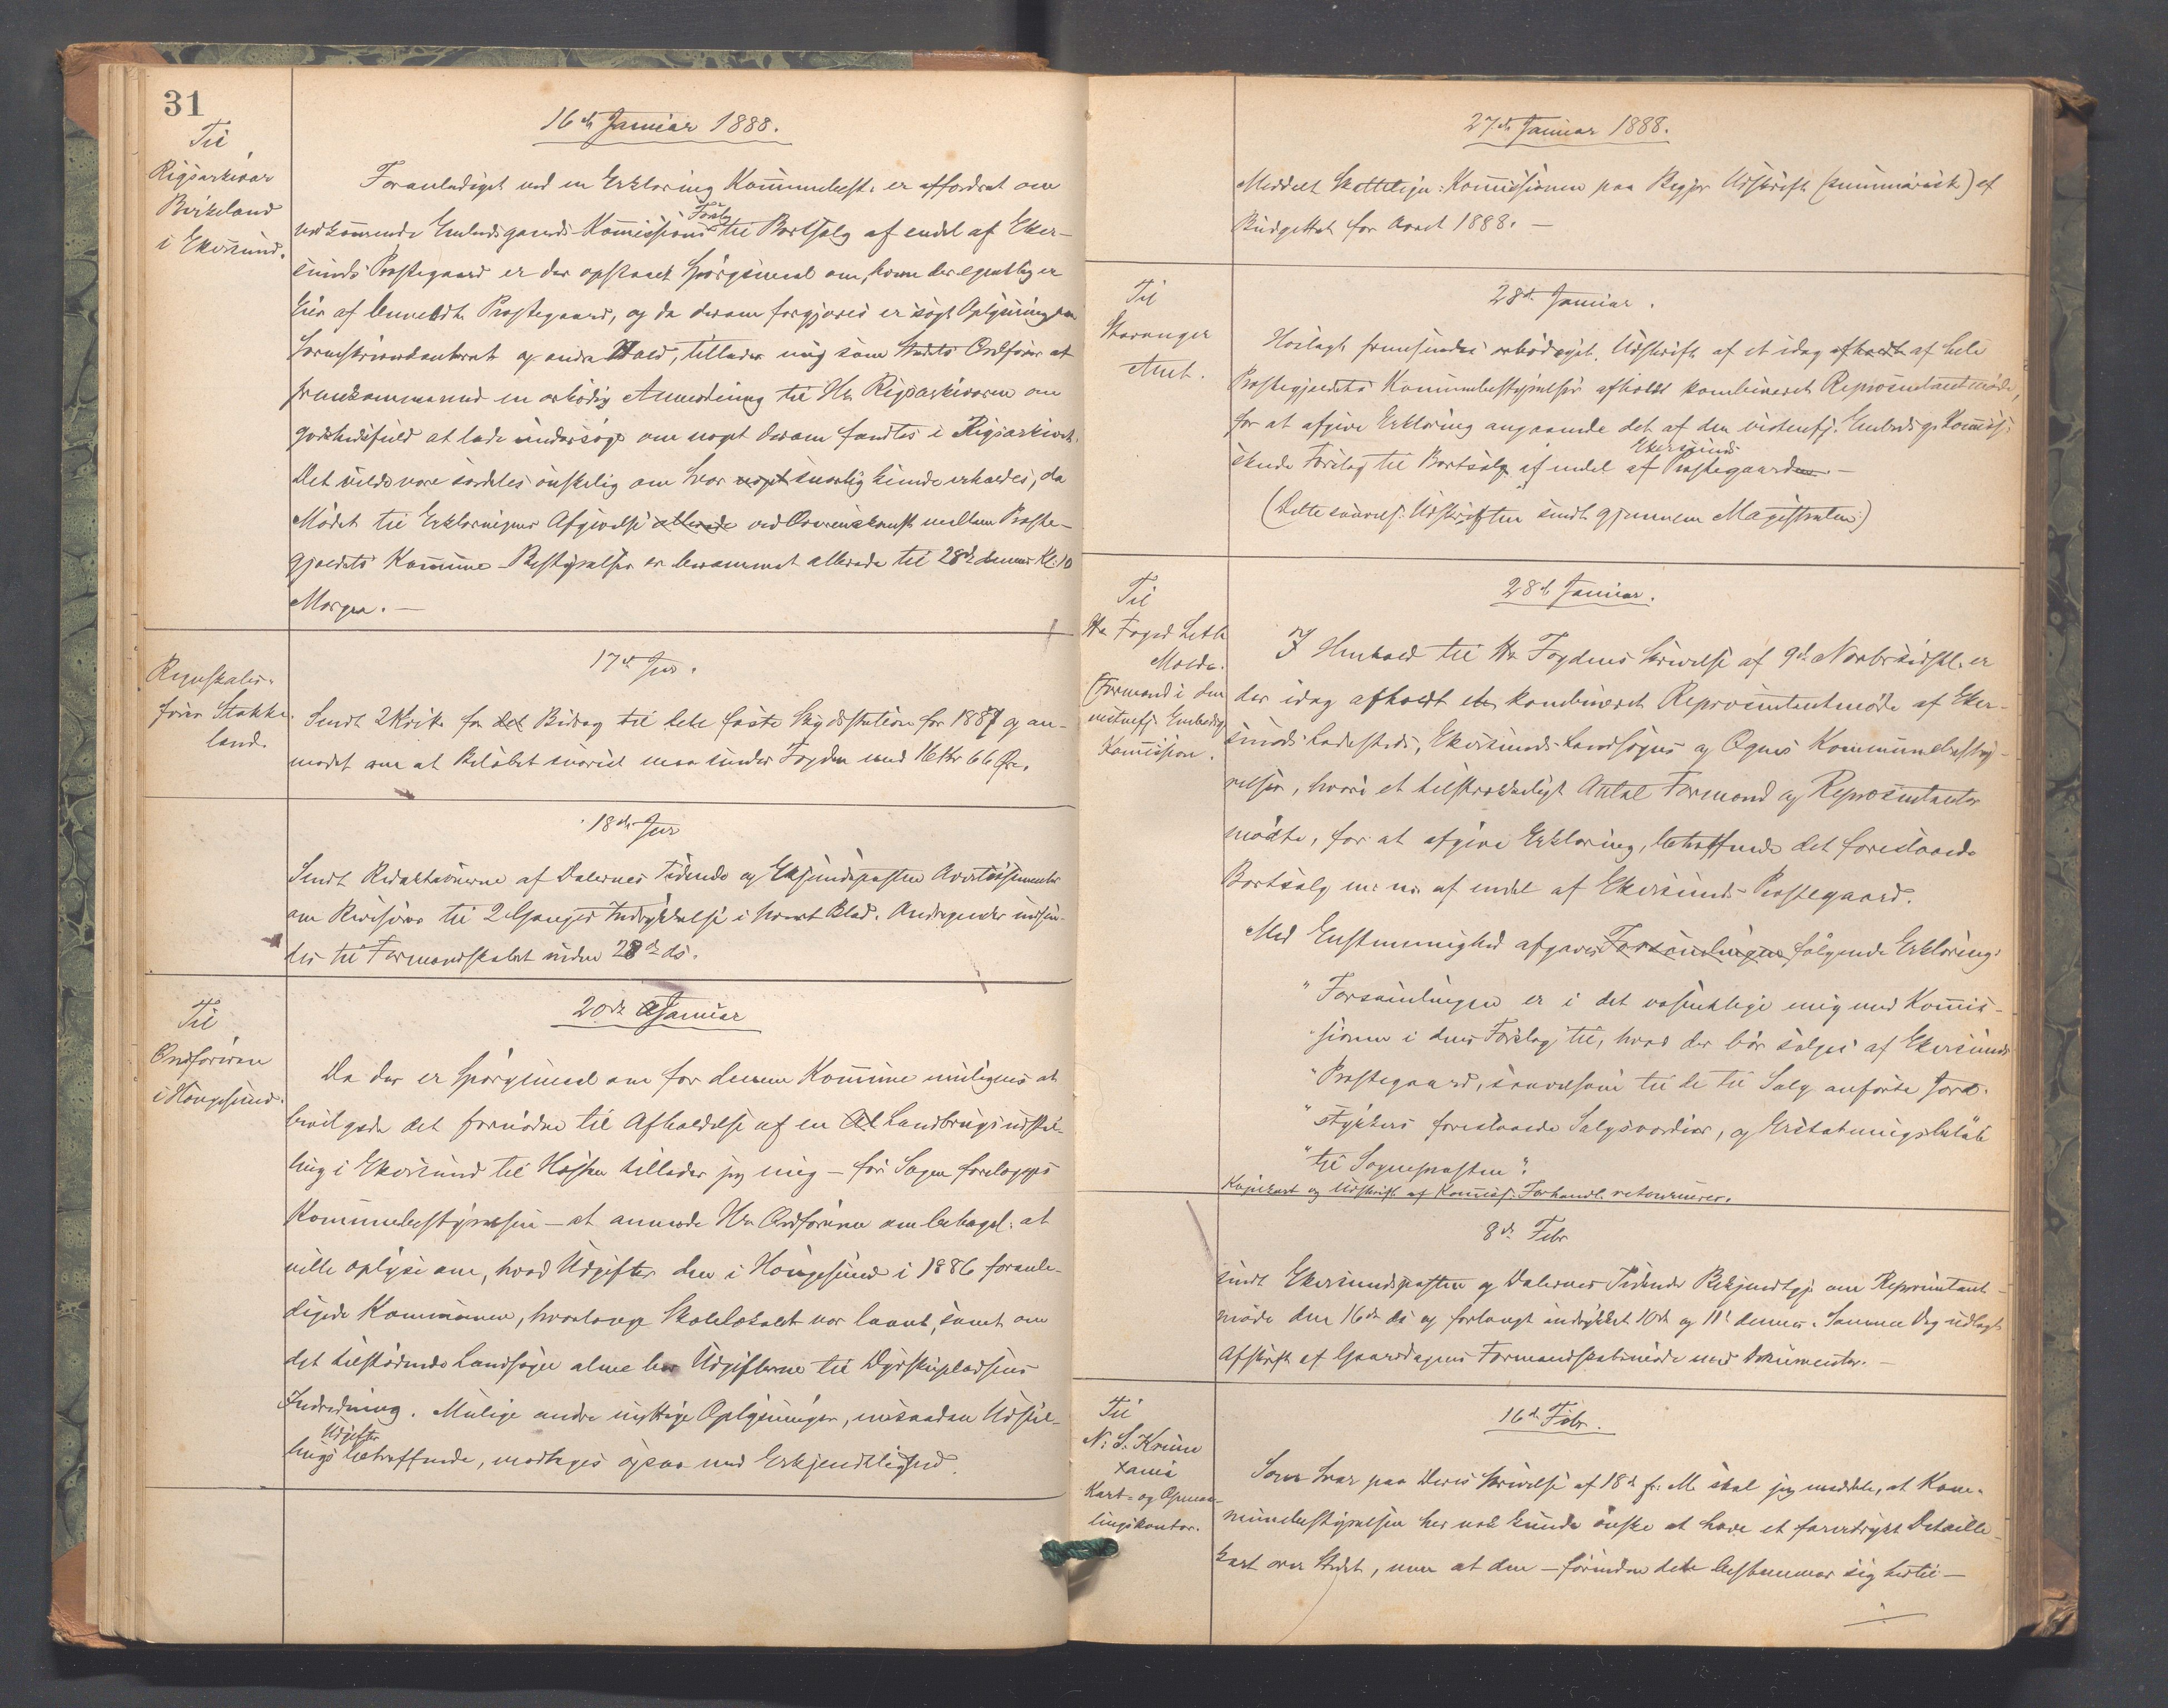 31
Til
Rigsarkivar
Birkeland
i Ekersund.
16de Januar 1888.
Foranlediget ved en Erklæring Kommunebest. er affordret om
vedkommende Embedsgaards-Kommissions Forslag til Bortsalg af endel af Eker-
sunds Præstegaard er der opstaaet Spørgsmaal om, hvem der egentlig er
Eier af benævnte Præstegaard, og da derom forgjæves er søgt Oplysning
og andre Sted, tillader mig som Stedets Ordfører at
fremkomme med en ærbødig Anmodning til Hr. Rigsarkivaren om
godhedsfuld at lade undersøge om noget derom fandtes i Rigsarkivet.
Det vilde være særdeles ønskelig om Svar noget snarlig kunde erholdes, da
Mødet til Erklæringens Afgivelse allerede ved Overenskomst mellem Præste-
gjældets Kommune-Bestyrelser er berammet allerede til 28de dennes Kl. 10
Morgen. —
Regnskabs-
fører Stokke-
land.
17de Jnr.
Sendt 2 Kvitt. for det Bidrag til lete faste Skydsstation for 1887 og an-
modet om at Beløbet snarest maa sendes Fogden med 16 Kr 66 Øre.
18de Jnr
Sendt Redaktionerne af Dalernes Tidende og Eksundsposten Avertissementer
om Revisorer til 2 Ganges Indrykkelse i hvert Blad. Andragender indsen-
des til Formandskabet inden 28de ds.
Til
Ordføreren
i Haugesund.
20de Januar
Da der er Spørgsmaal om for denne Kommune muligens at
bevilgede det fornødne til Afholdelse af en Al Landbrugsudstil-
ling i Ekersund til Høsten tillader jeg mig – før Sagen forelægges
Kommunebestyrelsen – at anmode Hr. Ordføreren om behagel. at
ville oplyse om, hvad Udgifter den i Haugesund i 1886 foranle-
digede Kommunen, hvorlænge Skolelokalet var laant, samt om
det tilstødende Landsogn alene bar Udgifterne til Dyrskuepladsens
Indredning. Mulige andre nyttige Oplysninger, en saadan Udstil-
lings Udgifter betræffende, modtages ogsaa med Erkjendtlighed.
27de Januar 1888.
Meddelt Skattelign. Kommissionen paa Begjær Udskrift (summarisk) af
Budgettet for Aaret 1888. —
Til
Stavanger
Amt.
28de Januar.
Hoslagt fremsendes ærbødigst Udskrift af et idag afholdt af hele
Præstegjældets Kommunebestyrelser afholdt kombineret Repræsentantmøde,
for at afgive Erklæring angaaende det af den vestenfj. Embedsg. Kommiss.
skede Forslag til Bortsalg af endel af Ekersunds Præstegaarden. —
(Dette saavelsom Udskriften sendt gjennem Magistraten)
Til
Hr. Foged Leth
Molde.
(Formand i den
vestenfj. Embedsg.
Kommission.
28de Januar.
I Henhold til Hr. Fogdens Skrivelse af 9de Novbr sidstl. er
der idag afholdt et kombineret Repræsentantmøde af Eker-
sunds Ladesteds, Ekersunds Landsogns og Ogns Kommunebesty-
relser, hvori et tilstrækkeligt Antal Formænd og Repræsentanter
mødte, for at afgive Erklæring, betræffende det foreslaaede
Bortsalg m: m: af endel af Ekersunds Præstegaard.
Med Enstemmighed afgaves Forsamlingen følgende Erklæring:
"Forsamlingen er i det væsentlige enig med Kommis-
"sionen i dens Forslag til, hvad der bør sælges af Ekersunds
"Præstegaard, saavelsom til de til Salg anførte Jord-
"stykkers foreslaaede Salgsværdier, og Erstatningsbeløb
"til Sognepræsten".
Kopikart og Udskrift af Kommiss. Forhandl. retourneres.
8de Febr
Sendt Ekersundsposten og Dalernes Tidende Bekjendtgj. om Repræsentant-
møde den 16de ds og forlangt indrykket 10de og 11te dennes. Samme Dag udlagt
Afskrift af Gaardagens Formandskabsmøde med Dokumenter. —
Til
N. S. Krum
Xania
Kart- og Opmaa-
lingskontor.
16de Febr.
Som Svar paa Deres Skrivelse af 18de f. M. skal jeg meddele, at Kom-
munebestyrelsen her nok kunde ønske at have et farvetrykt Detaille-
kart over Stedet, men at den – førinden dette bestemmer sig hertil –